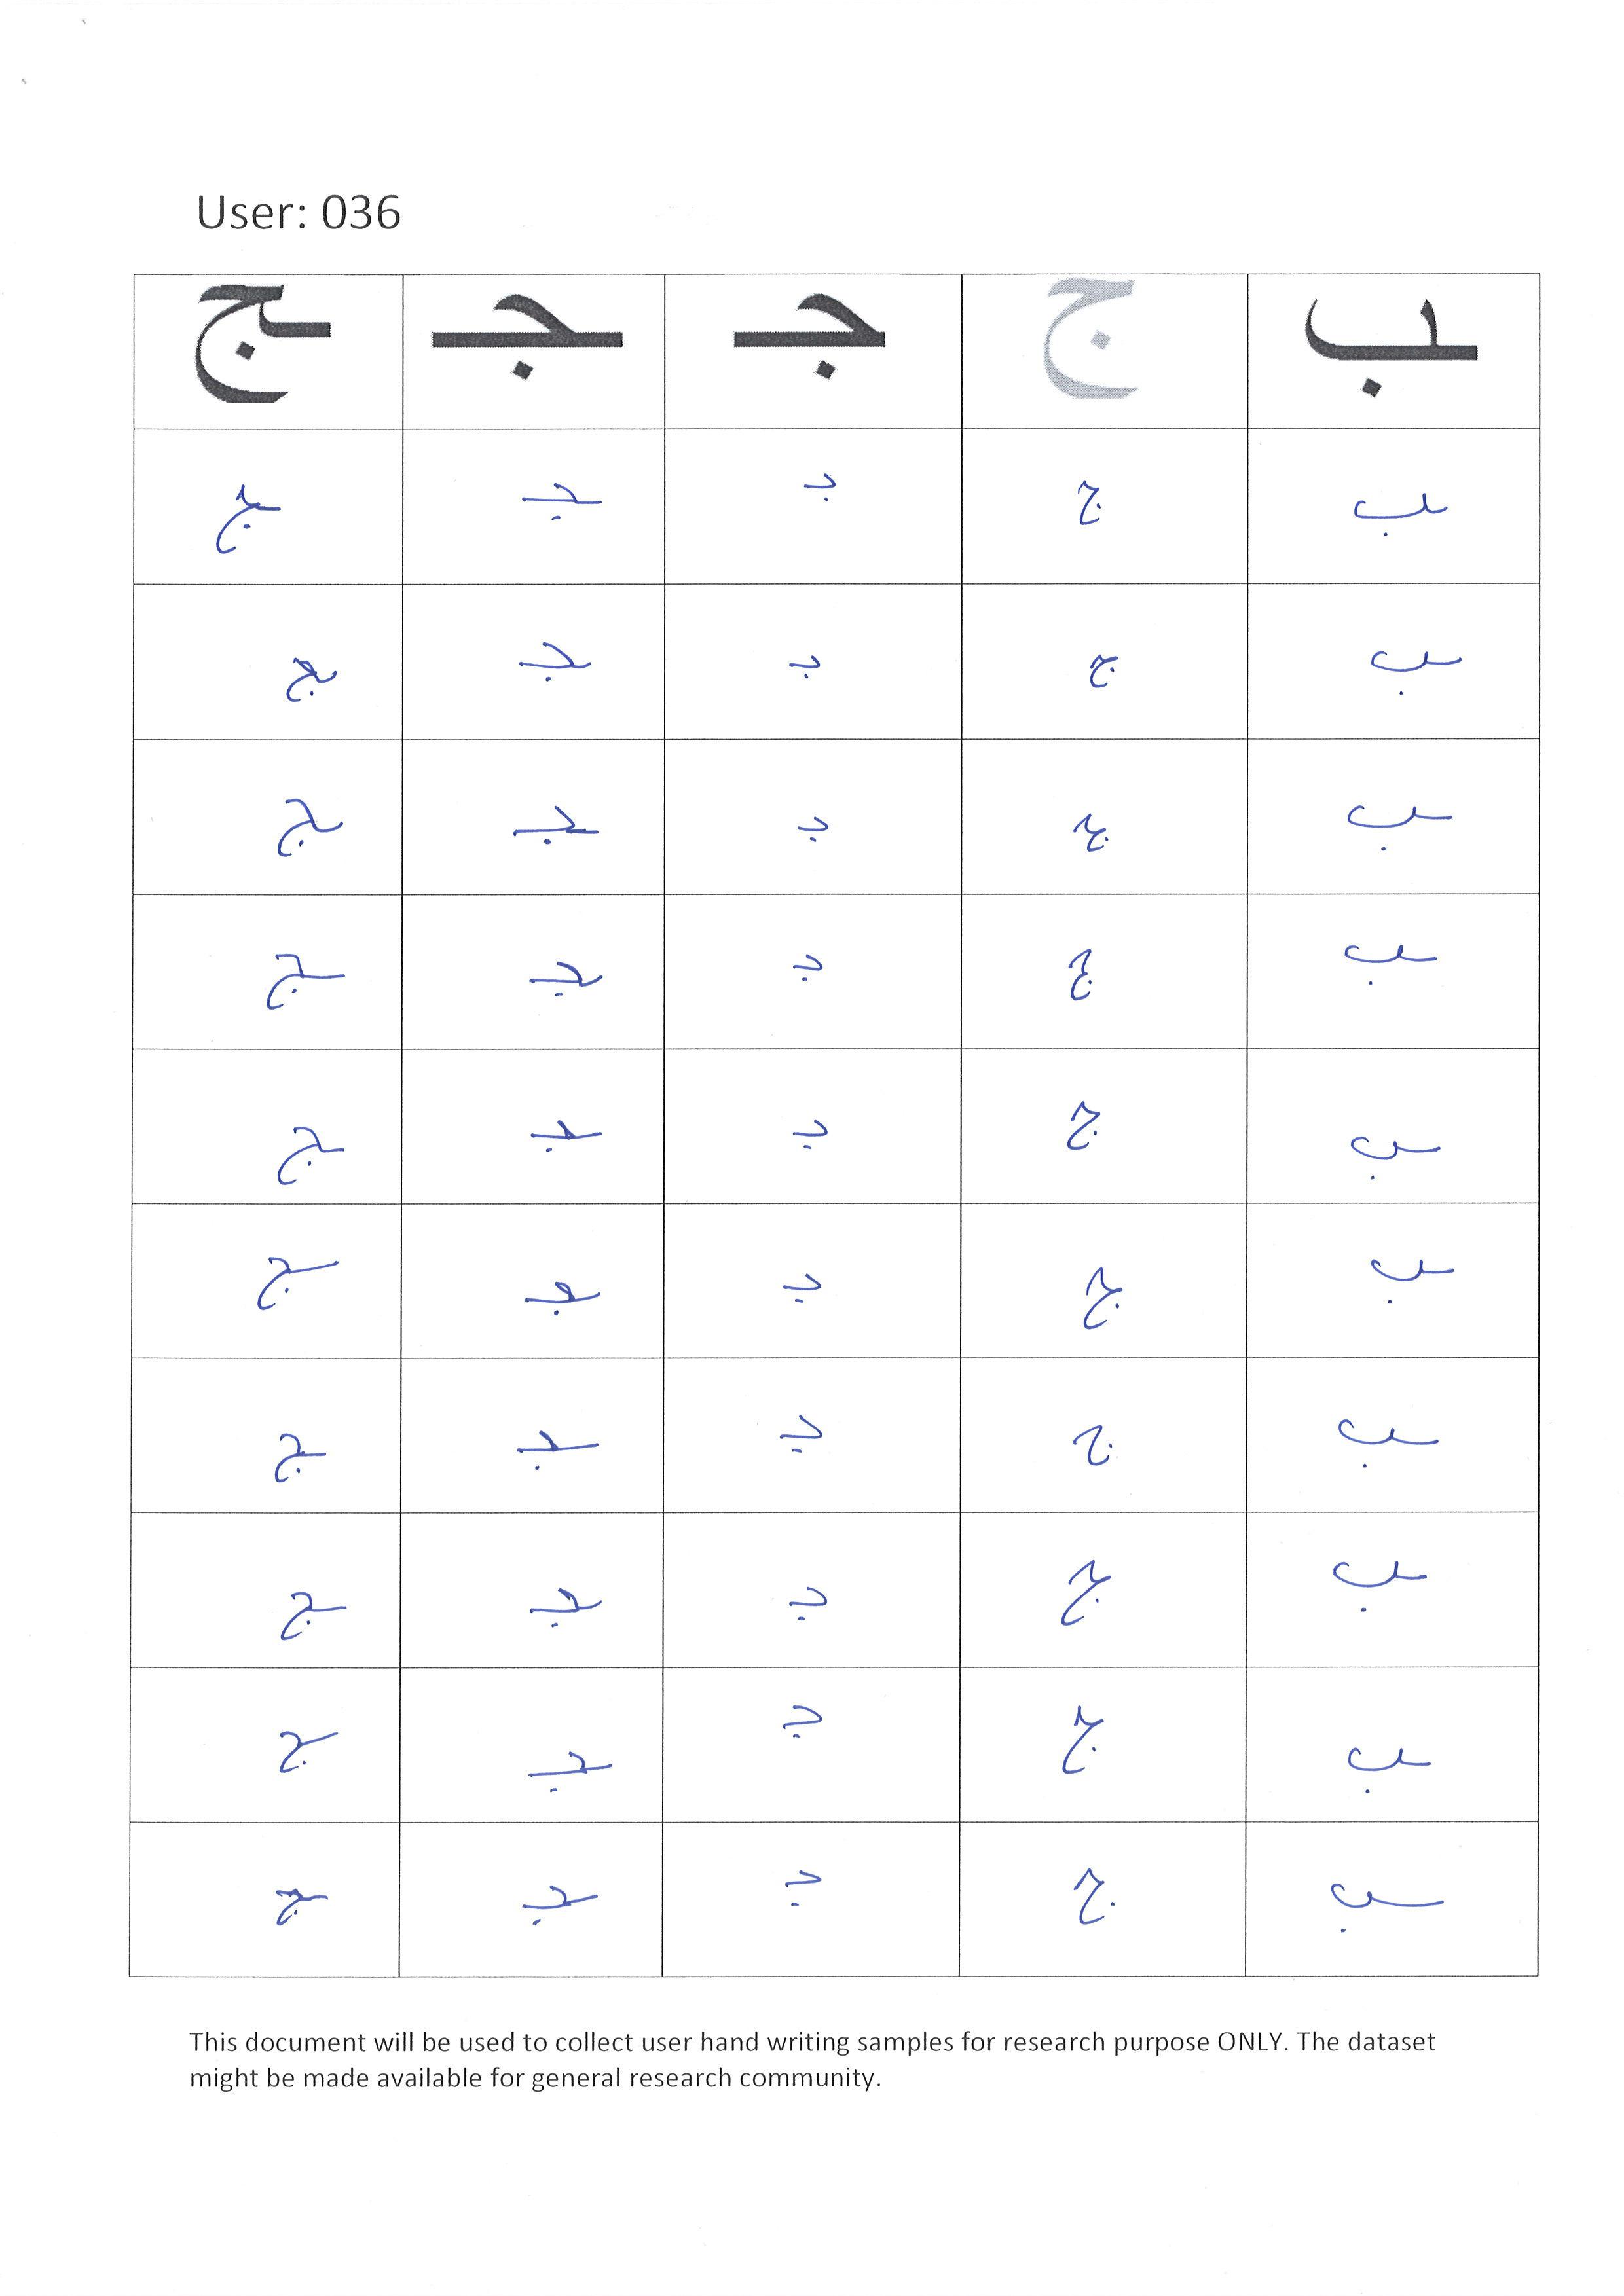 User: 036
ـب ج جـ ـجـ ـج
ـب ج جـ ـجـ ـج
ـب ج جـ ـجـ ـج
ـب ج جـ ـجـ ـج
ـب ج جـ ـجـ ـج
ـب ج جـ ـجـ ـج
ـب ج جـ ـجـ ـج
ـب ج جـ ـجـ ـج
ـب ج جـ ـجـ ـج
ـب ج جـ ـجـ ـج
ـب ج جـ ـجـ ـج
This document will be used to collect user hand writing samples for research purpose ONLY. The dataset
might be made available for general research community.